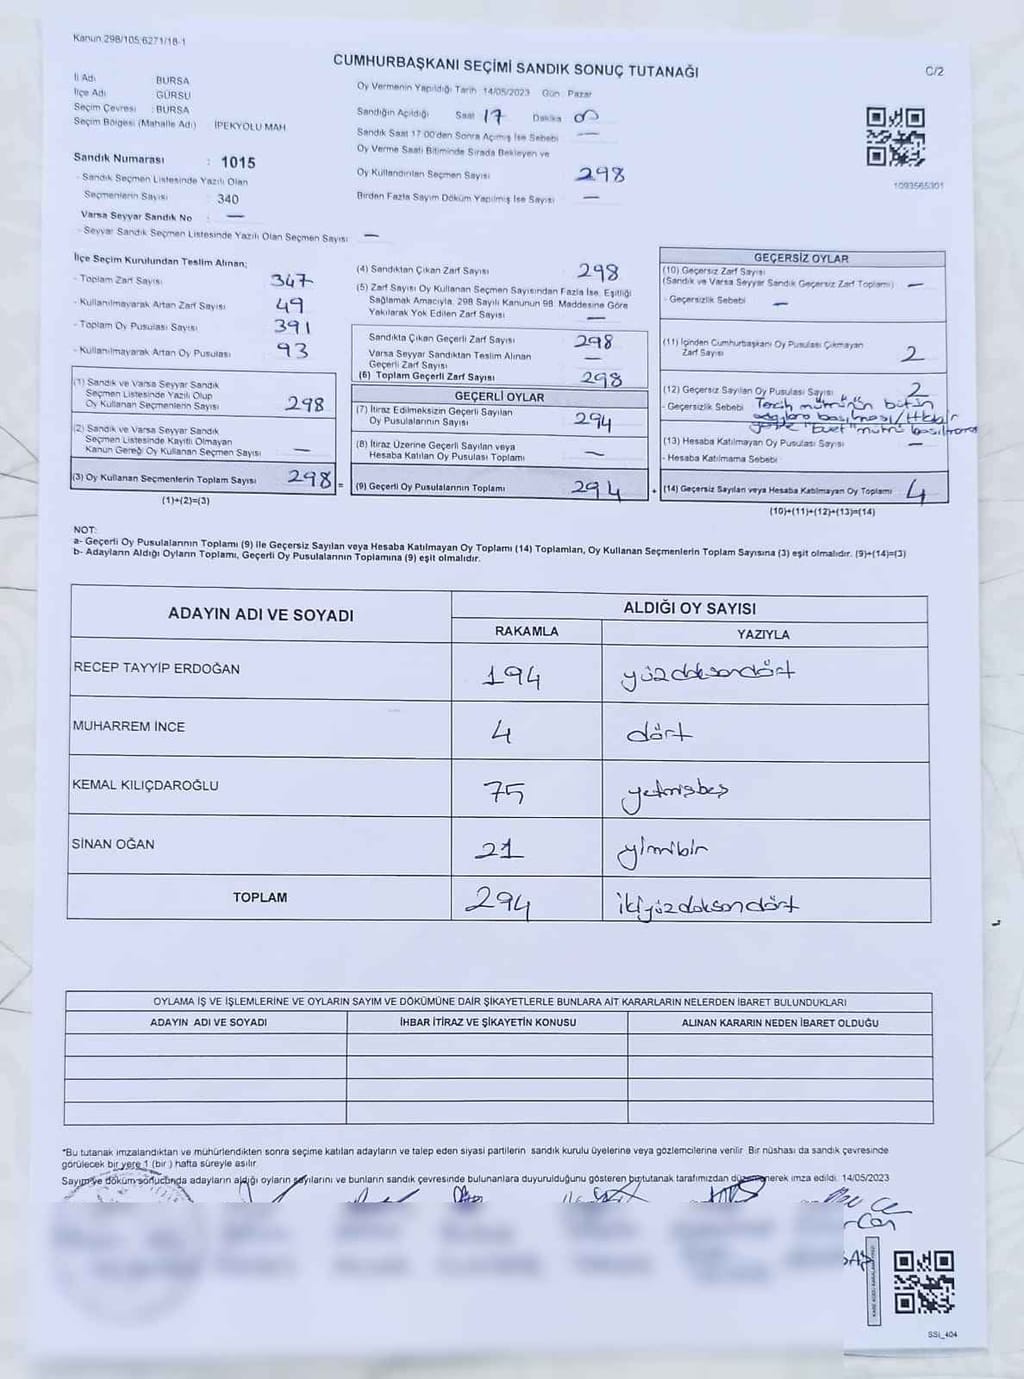 Kanun 298/105,6271/18-1
CUMHURBAŞKANI SEÇİMİ SANDIK SONUÇ TUTANAĞI
C/2
İl Adı BURSA
İlçe Adı GÜRSU
Seçim Çevresi : BURSA
Seçim Bölgesi (Mahalle Adı) İPEKYOLU MAH
Sandık Numarası : 1015
- Sandık Seçmen Listesinde Yazılı Olan
Seçmenlerin Sayısı 340
Varsa Seyyar Sandık No : —
- Seyyar Sandık Seçmen Listesinde Yazılı Olan Seçmen Sayısı —
Oy Vermenin Yapıldığı Tarih 14/05/2023 Gün : Pazar
Sandığın Açıldığı Saat 17 Dakika
Sandık Saat 17:00'den Sonra Açılmış İse Sebebi —
Oy Verme Saati Bitiminde Sırada Bekleyen ve
Oy Kullandırılan Seçmen Sayısı 298
Birden Fazla Sayım Döküm Yapılmış İse Sayısı —
1093565301
İlçe Seçim Kurulundan Teslim Alınan;
- Toplam Zarf Sayısı 347
- Kullanılmayarak Artan Zarf Sayısı 49
- Toplam Oy Pusulası Sayısı 391
- Kullanılmayarak Artan Oy Pusulası 93
(1) Sandık ve Varsa Seyyar Sandık
Seçmen Listesinde Yazılı Olup
Oy Kullanan Seçmenlerin Sayısı 298
(2) Sandık ve Varsa Seyyar Sandık
Seçmen Listesinde Kayıtlı Olmayan
Kanun Gereği Oy Kullanan Seçmen Sayısı —
(3) Oy Kullanan Seçmenlerin Toplam Sayısı 298 =
(1)+(2)=(3)
(4) Sandıktan Çıkan Zarf Sayısı 298
(5) Zarf Sayısı Oy Kullanan Seçmen Sayısından Fazla İse, Eşitliği
Sağlamak Amacıyla, 298 Sayılı Kanunun 98. Maddesine Göre
Yakılarak Yok Edilen Zarf Sayısı —
Sandıkta Çıkan Geçerli Zarf Sayısı 298
Varsa Seyyar Sandıktan Teslim Alınan
Geçerli Zarf Sayısı —
(6) Toplam Geçerli Zarf Sayısı 298
GEÇERLİ OYLAR
(7) İtiraz Edilmeksizin Geçerli Sayılan
Oy Pusulasının Sayısı 294
(8) İtiraz Üzerine Geçerli Sayılan veya
Hesaba Katılan Oy Pusulası Toplamı —
(9) Geçerli Oy Pusulalarının Toplamı 294 +
GEÇERSİZ OYLAR
(10) Geçersiz Zarf Sayısı
(Sandık ve Varsa Seyyar Sandık Geçersiz Zarf Toplamı) —
- Geçersizlik Sebebi —
(11) İçinden Cumhurbaşkanı Oy Pusulası Çıkmayan
Zarf Sayısı 2
(12) Geçersiz Sayılan Oy Pusulası Sayısı 2
- Geçersizlik Sebebi Tercih mührünün bütün
adaylara basılması/Hiçbir
yere "Evet" mührü basılmaması
(13) Hesaba Katılmayan Oy Pusulası Sayısı —
- Hesaba Katılmama Sebebi
(14) Geçersiz Sayılan veya Hesaba Katılmayan Oy Toplamı 4
(10)+(11)+(12)+(13)=(14)
NOT:
a- Geçerli Oy Pusulalarının Toplamı (9) ile Geçersiz Sayılan veya Hesaba Katılmayan Oy Toplamı (14) Toplamları, Oy Kullanan Seçmenlerin Toplam Sayısına (3) eşit olmalıdır. (9)+(14)=(3)
b- Adayların Aldığı Oyların Toplamı, Geçerli Oy Pusulalarının Toplamına (9) eşit olmalıdır.
ADAYIN ADI VE SOYADI ALDIĞI OY SAYISI
RAKAMLA YAZIYLA
RECEP TAYYİP ERDOĞAN 194 yüzdoksandört
MUHARREM İNCE 4 dört
KEMAL KILIÇDAROĞLU 75 yetmişbeş
SİNAN OĞAN 21 yirmibir
TOPLAM 294 ikiyüzdoksandört
OYLAMA İŞ VE İŞLEMLERİNE VE OYLARIN SAYIM VE DÖKÜMÜNE DAİR ŞİKAYETLERLE BUNLARA AİT KARARLARIN NELERDEN İBARET BULUNDUKLARI
ADAYIN ADI VE SOYADI İHBAR İTİRAZ VE ŞİKAYETİN KONUSU ALINAN KARARIN NEDEN İBARET OLDUĞU
*Bu tutanak imzalandıktan ve mühürlendikten sonra seçime katılan adayların ve talep eden siyasi partilerin sandık kurulu üyelerine veya gözlemcilerine verilir. Bir nüshası da sandık çevresinde
görülecek bir yere 1 (bir ) hafta süreyle asılır.
Sayım ve döküm sonucunda adayların aldığı oyların sayılarını ve bunların sandık çevresinde bulunanlara duyurulduğunu gösteren bu tutanak tarafımızdan düzenlenerek imza edildi. 14/05/2023
SSİ_404